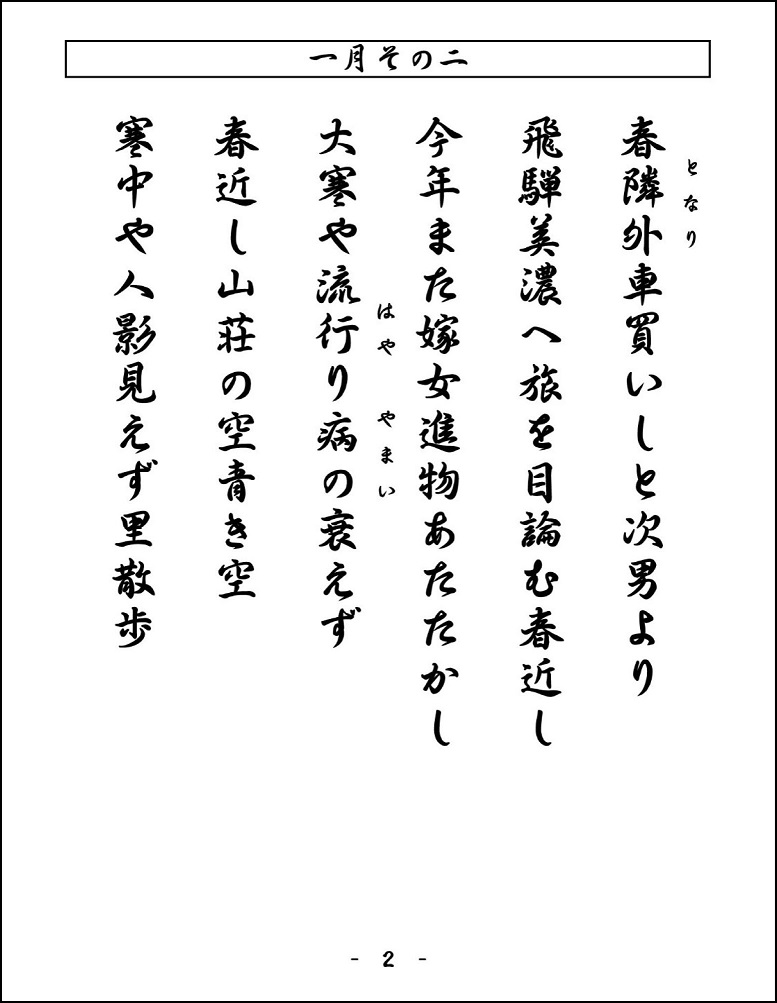 一月その二
春隣外車買いしと次男より
となり
飛騨美濃へ旅を目論む春近し
今年また嫁女進物あたたかし
大寒や流行り病の衰えず
はや やまい
春近し山荘の空青き空
寒中や人影見えず里散歩
- 2 -